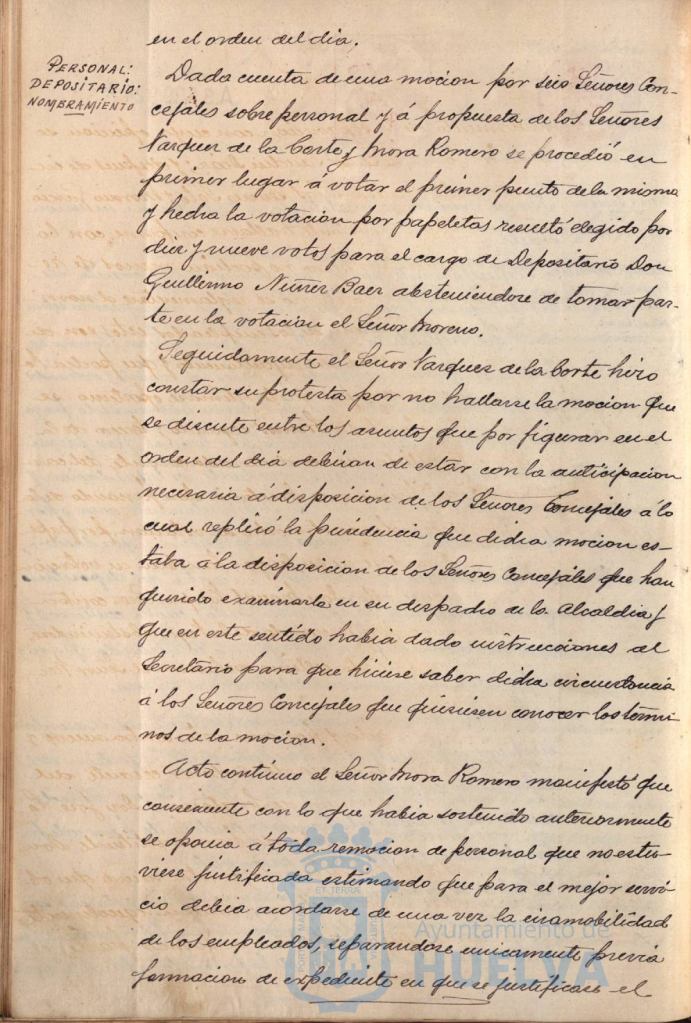 en el orden del dia.
PERSONAL:
DEPOSITARIO:
NOMBRAMIENTO
Dada cuenta de una mocion por seis Señores Con-
cejales sobre personal y á propuesta de los Señores
Vazquez de la Corte y Mora Romero se procedió en
primer lugar á votar el primer punto de la misma
y hecha la votacion por papeletas resultó elegido por
diez y nueve votos para el cargo de Depositario Don
Guillermo Nuñez Baez absteniendose de tomar par-
te en la votacion el Señor Moreno.
Seguidamente el Señor Vazquez de la Corte hizo
constar su protesta por no hallarse la mocion que
se discute entre los asuntos que por figurar en el
orden del dia debieran de estar con la anticipacion
necesaria á disposicion de los Señores Concejales á lo
cual replicó la presidencia que dicha mocion es-
taba á la disposicion de los Señores Concejales que han
querido examinarla en su despacho de la Alcaldia y
que en este sentido habia dado instrucciones al
Secretario para que hiciese saber dicha circunstancia
á los Señores Concejales que quisiesen conocer los térmi-
nos de la mocion.
Acto continuo el Señor Mora Romero manifestó que
consecuente con lo que habia sostenido anteriormente
se oponia á toda remocion de personal que no estu-
viese justificada estimando que para el mejor servi-
cio debia acordarse de una vez la inamobilidad
de los empleados, separandose unicamente previa
formacion de expediente en que se justificase el
Ayuntamiento de
HUELVA